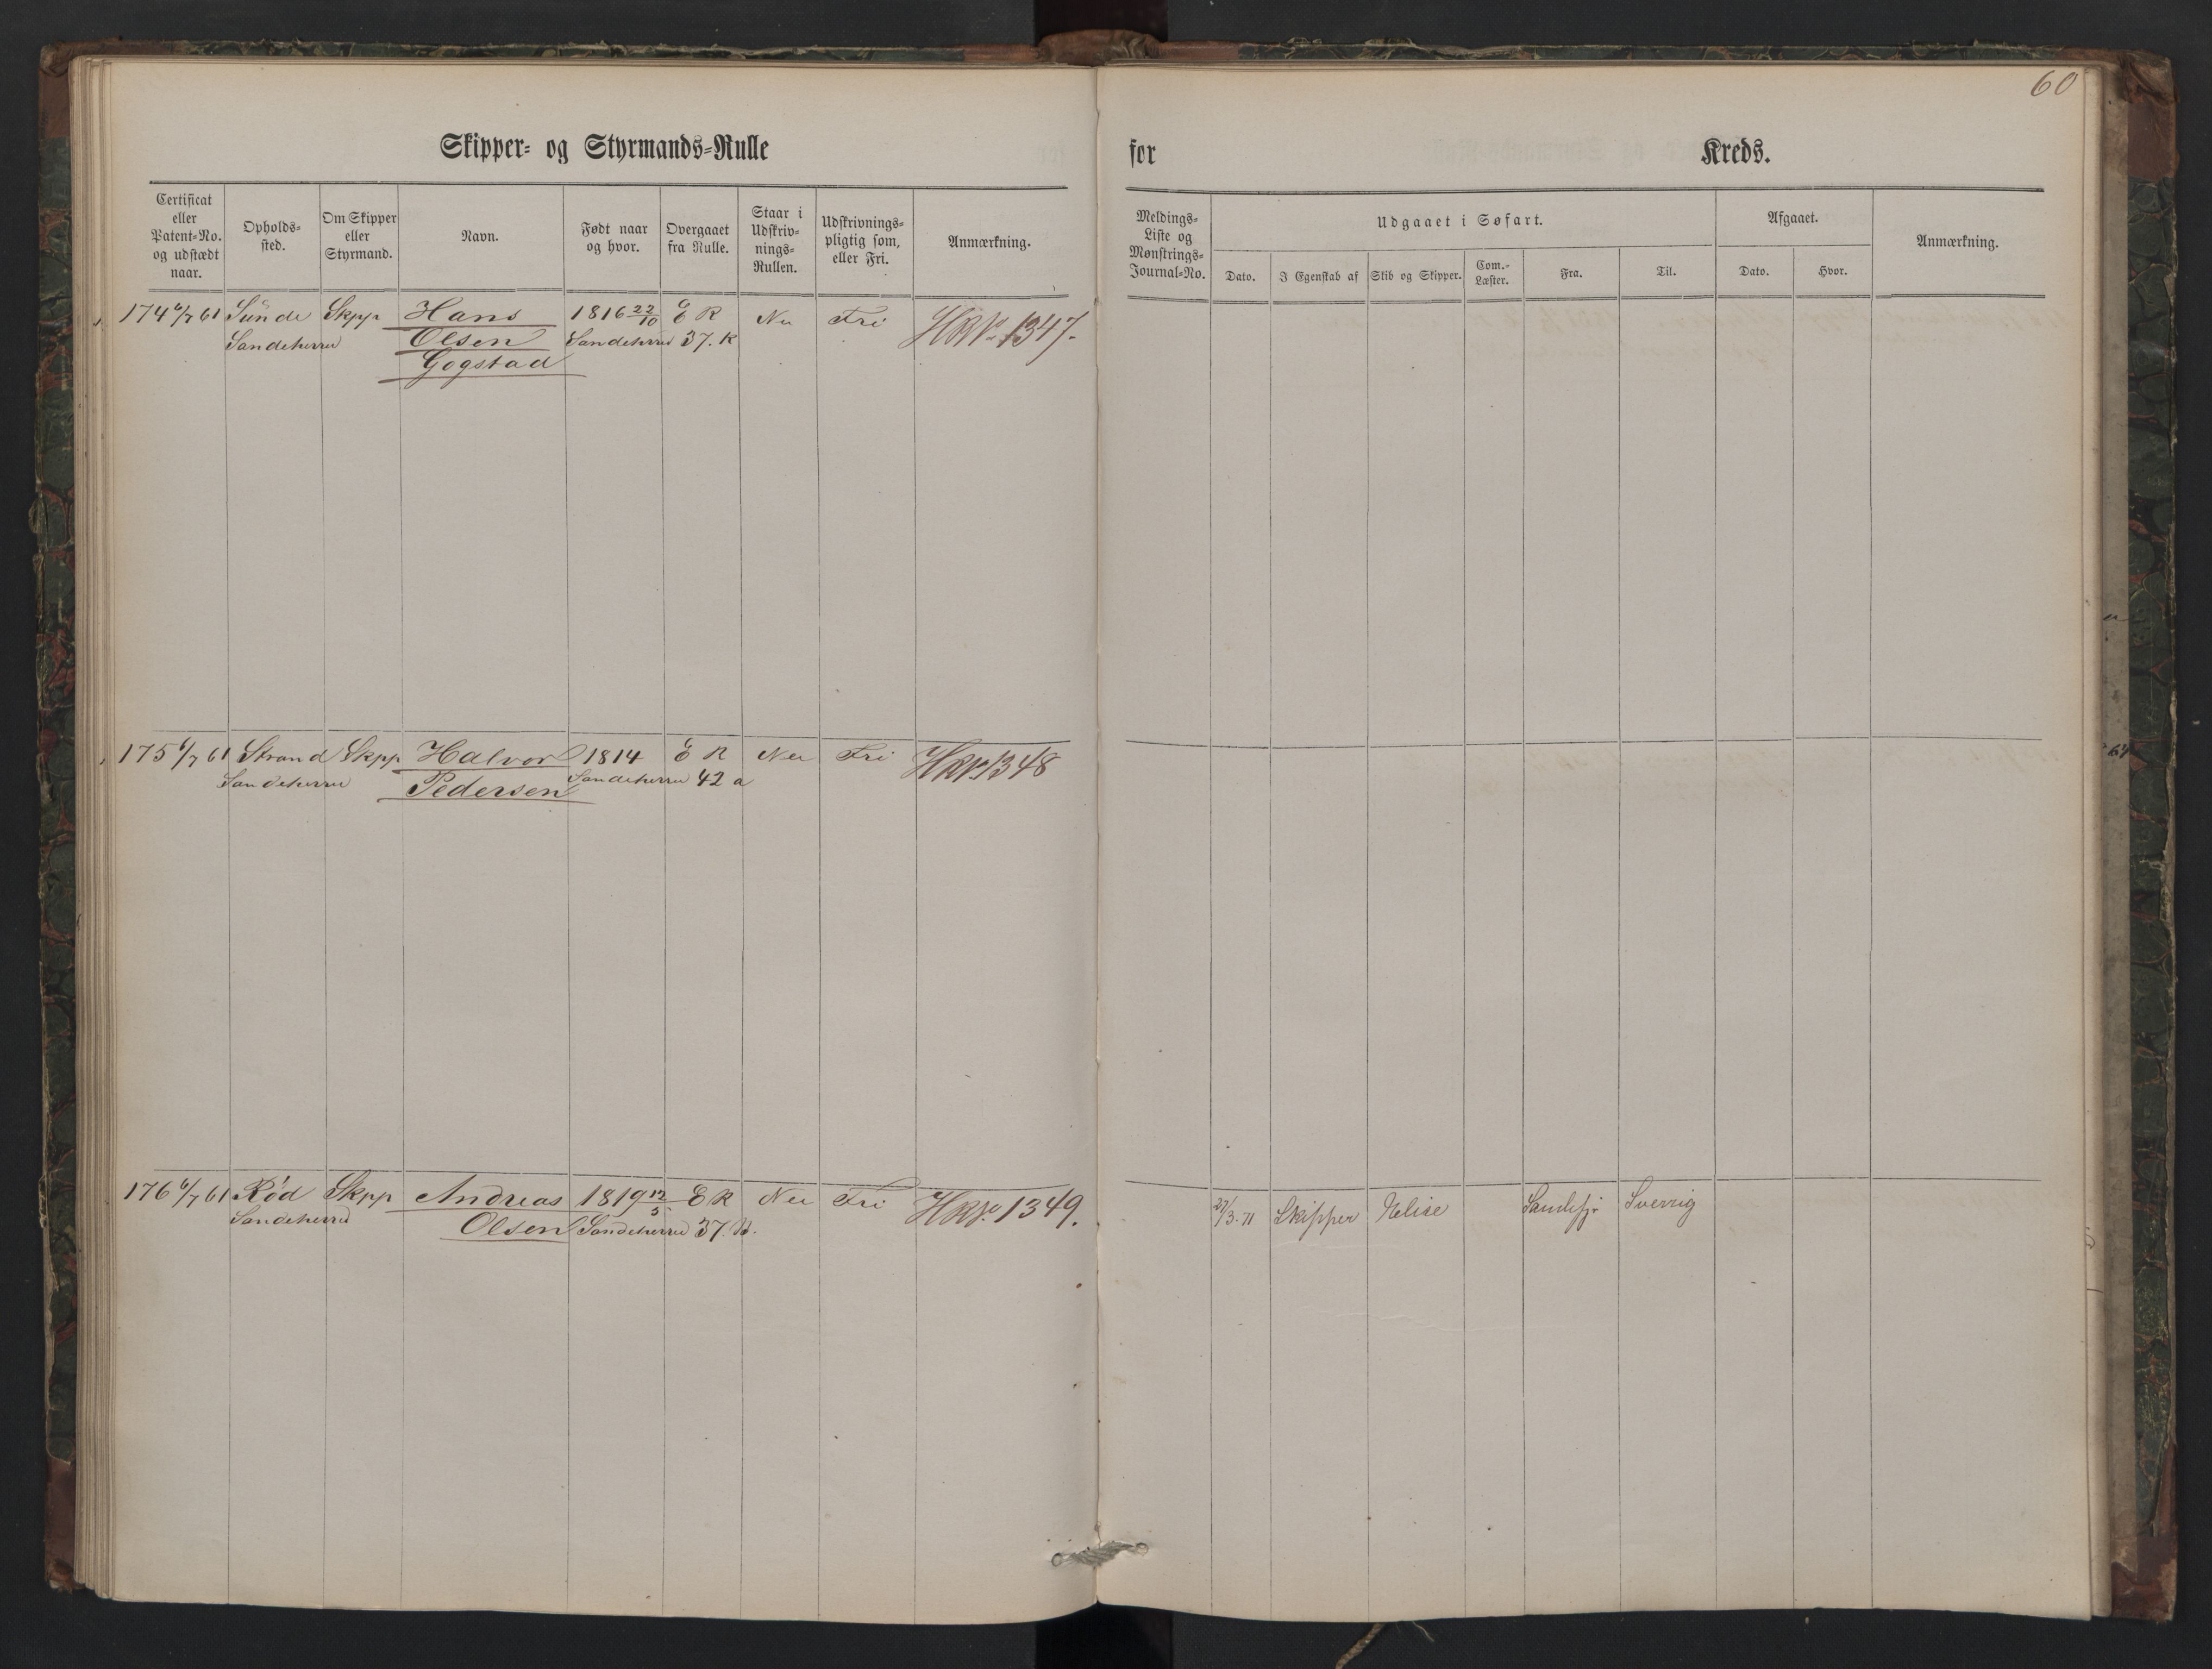 60
Skipper- og Styrmands-Rulle for Kreds.
Certificat eller Patent-No. og udstædt naar.
Opholds-sted.
Om Skipper eller Styrmand.
Navn.
Født naar og hvor.
Overgaaet fra Rulle.
Staar i Udskriv-nings-Rullen.
Udskrivnings-pligtig som, eller Fri.
Anmærkning.
Meldings-Liste og Mønstrings-Journal-No.
Udgaaet i Søfart.
Dato.
I Egenskab af
Skib og Skipper.
Com.-Læster.
Fra.
Til.
Afgaaet.
Dato.
Hvor.
Anmærkning.
174 6/7 61 Sunde Skpp Hans 1816 22/10 E R Nei Fri HRNo 1347.
Sandeherred Olsen Sandeherred 37. K
Gogstad
175 6/7 61 Strand Skpp Halvor 1814 E R Nei Fri HRNo 1348
Sandeherred Pedersen Sandeherred 42 a
176 6/7 61 Rød Skpp Andreas 1819 12/5 E R Nei Fri HRNo. 1349.
Sandeherred Olsen Sandeherred 37.
/3. 71 Skipper Sandefj Sverrig